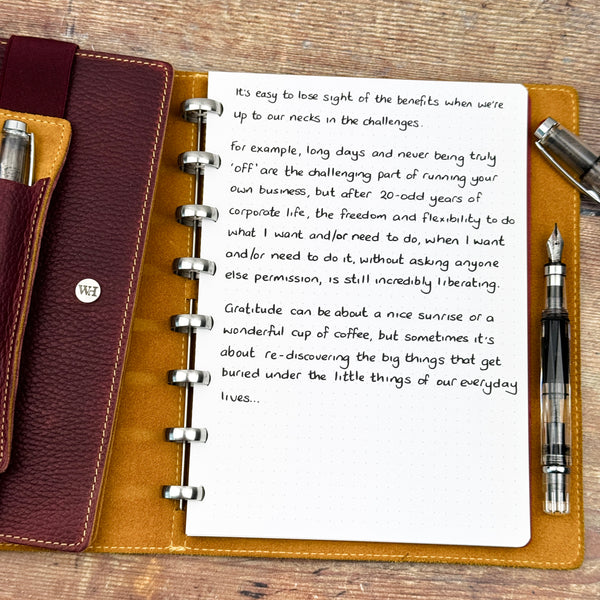 It's easy to lose sight of the benefits when we're
up to our necks in the challenges.
For example, long days and never being truly
'off' are the challenging part of running your
own business, but after 20-odd years of
corporate life, the freedom and flexibility to do
what I want and/or need to do, when I want
and/or need to do it, without asking anyone
else permission, is still incredibly liberating.
Gratitude can be about a nice sunrise or a
wonderful cup of coffee, but sometimes it's
about re-discovering the big things that get
buried under the little things of our everyday
lives...
WH